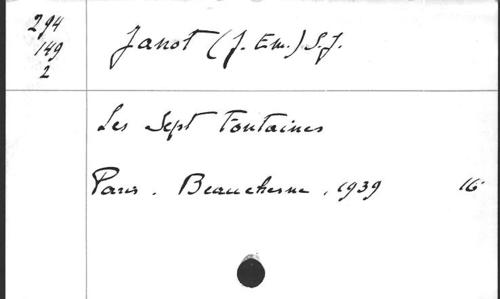 294
149
2
Janot (J. Em.) S.J.
Les Sept Fontaines
Paris. Beauchesne, 1939 16°